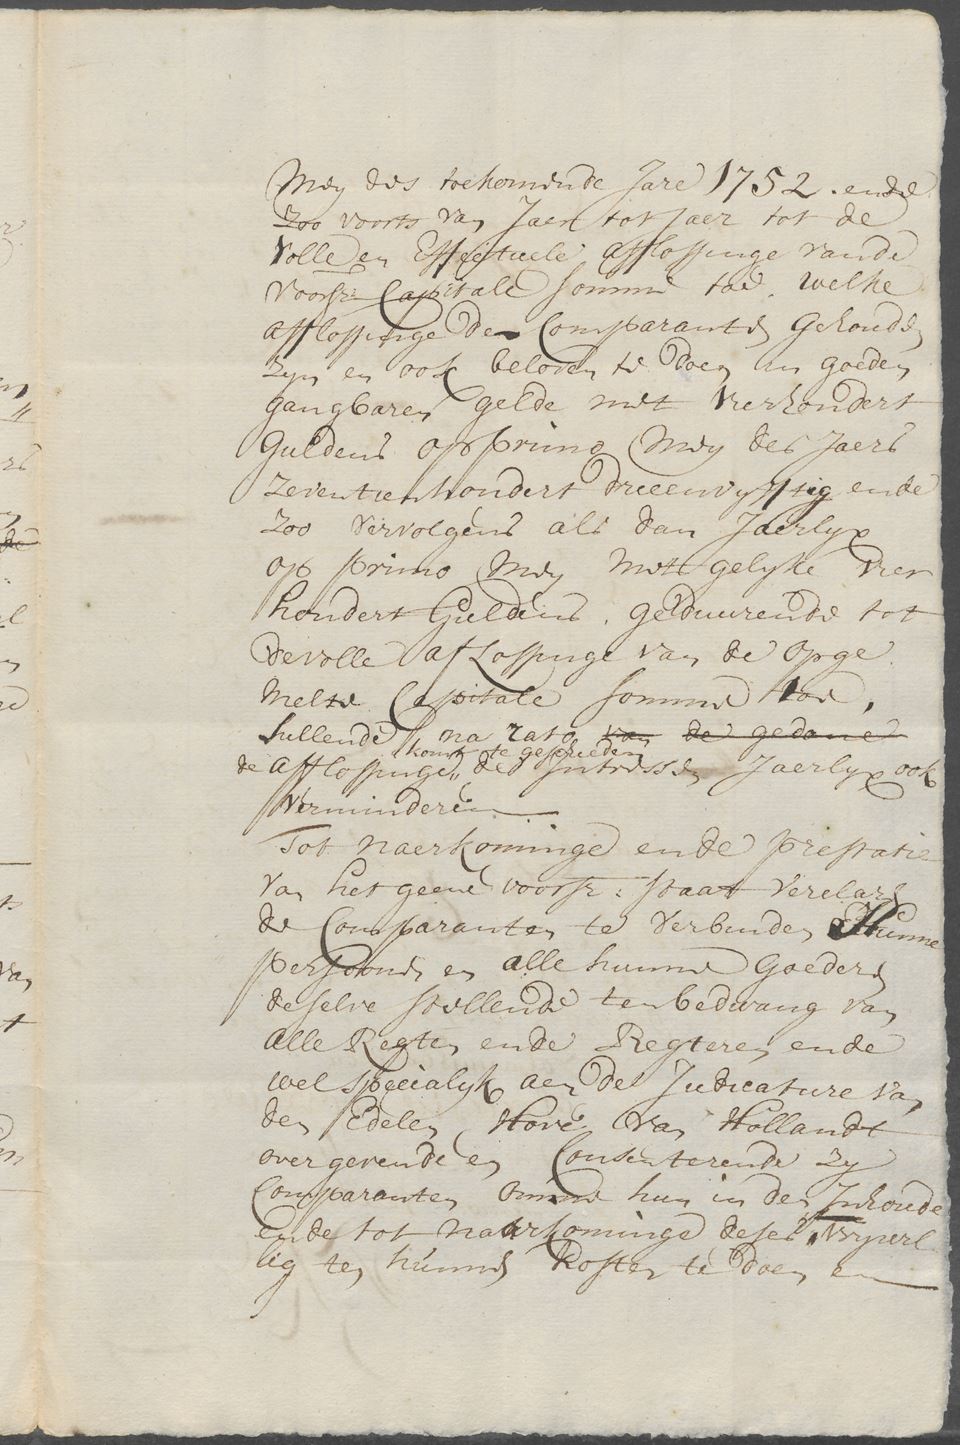 Meij des toekomende Jare 1752. ende
Zoo voorts van Jaer tot Jaer tot de
Volle en Effectuele afflossinge vande
voorsz: Capitale somme toe. welke
afflossinge de Comparanten Gehouden
zyn en ook beloven te doen in goeden
gangbaren gelde met Vierhondert
Guldens op primo Meij des Jaers
Zeventienhondert drieenvyftig ende
Zoo vervolgens als dan Jaerlyx
op primo Meij mett gelyke vier
hondert Guldens, geduurende tot
de volle aflossinge van de opge
melde Capitale somme toe,
Sullende, na rato van de gedane
komt te geschieden
de afflossinge, de Intressen Jaerlyx ook
verminderen
Tot naerkominge ende prestatie
van het geene voorsz: staat verclaren
de Comparanten te verbinden Hunne
persoonen en alle hunne Goederen
deselve stellende ten bedwang van
alle Regten ende Regteren ende
wel specialyk aen de Judicature van
den Edelen Hove van Hollandt
overgevende en Consenterende zy
Comparanten omme hun in den Inhoude
ende tot naerkominge deser,
lig ten hunnen Kosten te doen en